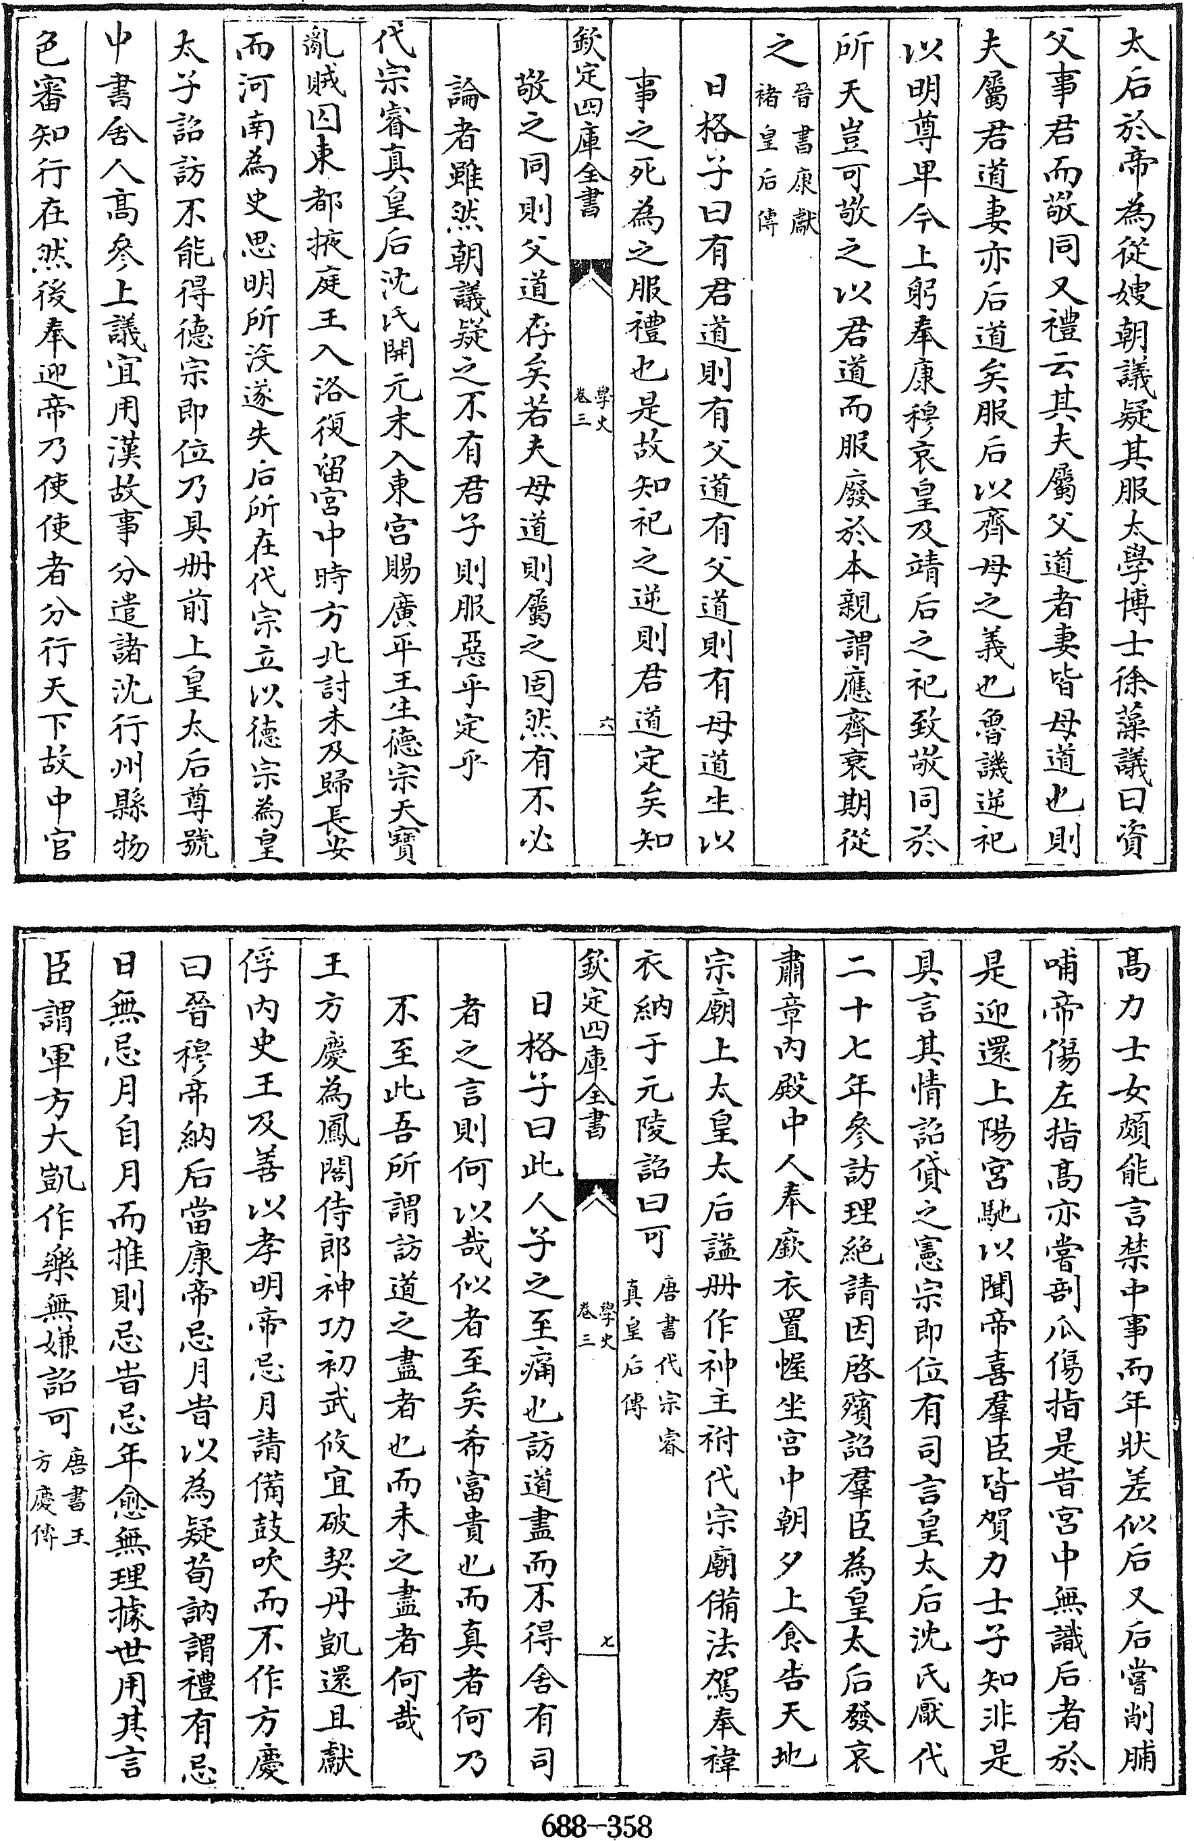 太后於帝為從嫂朝議疑其服太學博士徐藻議曰資
父事君而敬同又禮云其夫屬父道者妻皆母道也則
夫屬君道妻亦后道矣服后以齊母之義也魯譏逆祀
以明尊卑今上躬奉康穆哀皇及靖后之祀致敬同於
所天豈可敬之以君道而服廢於本親謂應齊衰期從
之
晉書康獻
褚皇后傳
日格子曰有君道則有父道有父道則有母道生以
事之死為之服禮也是故知祀之逆則君道定矣知
欽定四庫全書
學史
卷三
六
敬之同則父道存矣若夫母道則屬之固然有不必
論者雖然朝議疑之不有君子則服惡乎定乎
代宗睿真皇后沈氏開元末入東宮賜廣平王生德宗天寶
亂賊囚東都掖庭王入洛復留宮中時方北討未及歸長安
而河南為史思明所沒遂失后所在代宗立以德宗為皇
太子詔訪不能得德宗即位乃具册前上皇太后尊號
中書舍人高參上議宜用漢故事分遣諸沈行州縣物
色審知行在然後奉迎帝乃使使者分行天下故中官
高力士女頗能言禁中事而年狀差似后又后嘗削脯
哺帝傷左指高亦嘗剖瓜傷指是時宮中無識后者於
是迎還上陽宮馳以聞帝喜羣臣皆賀力士子知非是
具言其情詔貸之憲宗即位有司言皇太后沈氏厭代
二十七年參訪理絕請因啓殯詔羣臣為皇太后發哀
肅章內殿中人奉廞衣置幄坐宮中朝夕上食告天地
宗廟上太皇太后謚册作神主祔代宗廟備法駕奉褘
衣納于元陵詔曰可
唐書代宗睿
真皇后傳
欽定四庫全書
學史
卷三
七
日格子曰此人子之至痛也訪道盡而不得舍有司
者之言則何以哉似者至矣希富貴也而真者何乃
不至此吾所謂訪道之盡者也而未之盡者何哉
王方慶為鳳閣侍郎神功初武攸宜破契丹凱還且獻
俘內史王及善以孝明帝忌月請備鼓吹而不作方慶
曰晉穆帝納后當康帝忌月時以為疑荀訥謂禮有忌
日無忌月自月而推則忌時忌年愈無理據世用其言
臣謂軍方大凱作樂無嫌詔可
唐書王
方慶傳
688-358